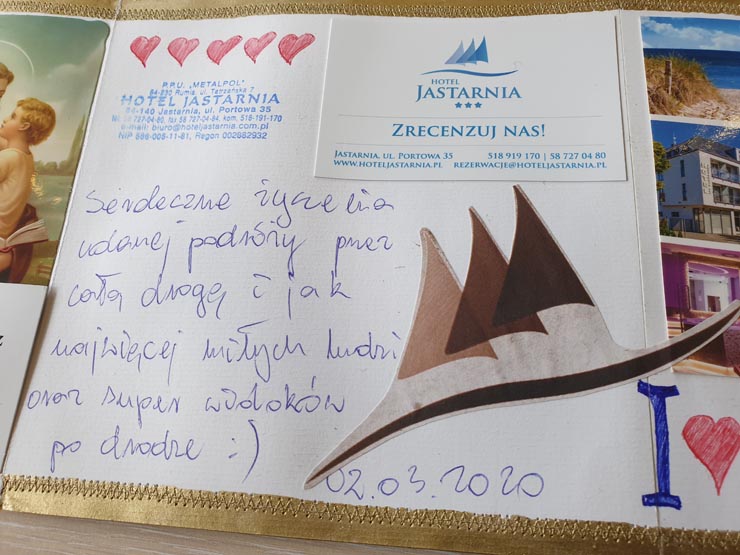 P.P.U. „METALPOL"
84-230 Rumia, ul. Tenzańska 7
HOTEL JASTARNIA
84-140 Jastarnia, ul. Portowa 35
Tel. 58 727-04-80, fax 58 727-04-84, kom. 518-191-170
e-mail: biuro@hoteljastarnia.com.pl
NIP 586-005-11-81, Regon 002982932
HOTEL
JASTARNIA
ZRECENZUJ NAS!
JASTARNIA, UL. PORTOWA 35 518 919 170 | 58 727 04 80
WWW.HOTELJASTARNIA.PL REZERWACJE@HOTELJASTARNIA.PL
Serdeczne życzenia
udanej podróży przez
całą drogę i jak
najwięcej miłych ludzi
oraz super widoków
po drodze :)
02.03.2020
I